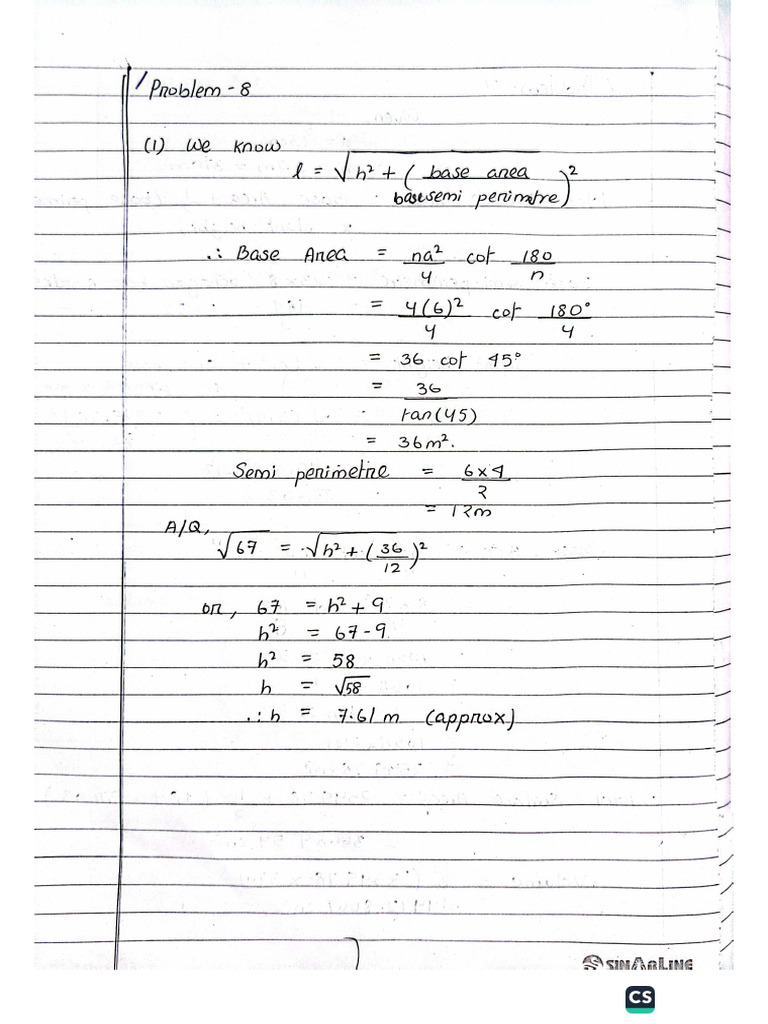 Problem - 8
(1) We know
l = √(h² + (base area / base semi perimetre)²)
∴ Base Area = na²/4 cot 180/n
= 4(6)²/4 cot 180°/4
= 36 cot 45°
= 36/tan(45)
= 36m².
Semi perimetre = 6×4/2
= 12m
A/Q,
√67 = √(h² + (36/12)²)
or, 67 = h² + 9
h² = 67 - 9
h² = 58
h = √58
∴ h = 7.61 m (approx)
SINARLINE
CS